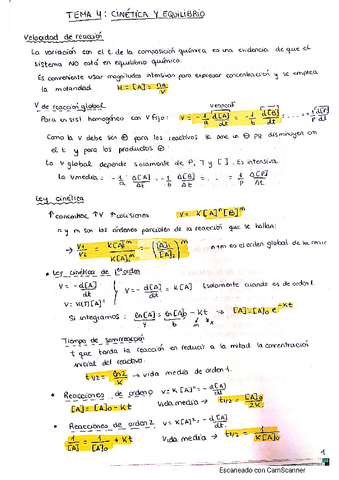 TEMA 4: CINÉTICA Y EQUILIBRIO
Velocidad de reacción
La variación con el t de la composición química es una evidencia de que el
sistema NO está en equilibrio químico.
Es conveniente usar magnitudes intensivas para expresar concentración y se emplea
la molaridad M = [A] = na/V
V de reacción global
Para un sist. homogéneo con V fijo: V = -1/a d[A]/dt = -1/b d[B]/dt = ... = 1/p d[P]/dt
Como la v debe ser ⊕ para los reactivos se pone un ⊖ pq disminuyen con
el t y para los productos ⊕.
La v global depende solamente de P, T y [ ]. Es intensiva
La Vmedia = -1/a Δ[A]/Δt = -1/b Δ[B]/Δt = ... = 1/p Δ[P]/Δt
Ley cinética
↑concentrac ↑V ↑colisiones V = K[A]^n[B]^m
n y m son los órdenes parciales de la reacción que se hallan:
n+m es el orden global de la
• Ley cinética de 1er orden
V = -d[A]/dt
V = K[A]
V = -d[A]/dt = K[A] (solamente cuando es de orden 1.
Si integramos: ln[A] = ln[A]0 - Kt → [A] = [A]0 e^-Kt
y b m x
Tiempo de semirreacción
t que tarda la reacción en reducir a la mitad la concentración
inicial del reactivo.
t1/2 = ln2/K → vida media de orden 1.
• Reacciones de orden 0 V = K[A]^0 = -d[A]/dt
[A] = [A]0 - Kt Vida media → t1/2 = [A]0/2K
• Reacciones de orden 2 V = K[A]^2 = -d[A]/dt
1/[A] = 1/[A]0 + Kt Vida media → t1/2 = 1/K[A]0
1
Escaneado con CamScanner